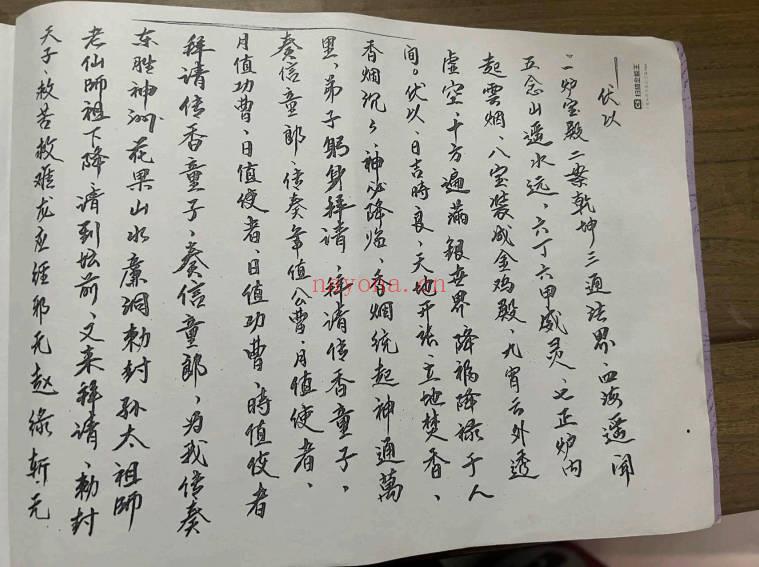 伏以
一炉宝殿二案乾坤三通法界、四海遥闻
五念山遥水远、六丁六甲威灵、七正炉内
起雲烟、八宝装成金鸡殿、九宵云外透
虚空、十方遍满银世界降福降禄于人
间。伏以、日吉時良、天地开张、立地焚香、
香烟沉沉、神必降临、香烟统起神通萬
里、弟子躬身拜请、拜请传香童子、
奏信童郎、传奏年值公曹、月值使者、
月值功曹、日值使者、日值功曹、時值使者
拜请传香童子、奏信童郎、为我传奏
东胜神洲花果山水廉洞勅封孙太祖師
老仙師祖下降请到坛前、又来拜请、勅封
天子、救苦救难龙应经邪无赵缘斩无
nayona.cn
扫描全能王